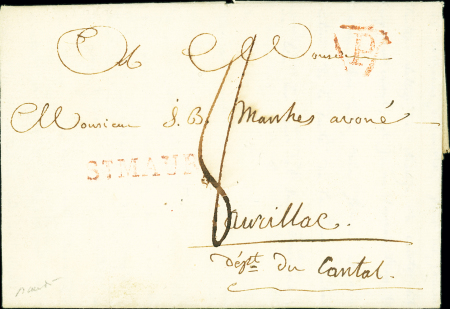 A Monsieur
P
Monsieur J. B. Manhes avoué
8
ST MAUR
aurillac.
dépt. du Cantal.